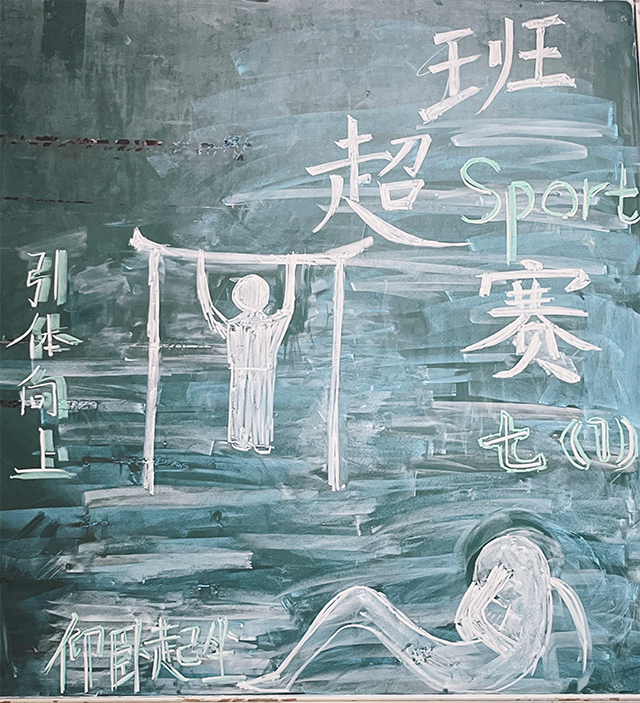 班
超
Sport
赛
七(1)
引体向上
仰卧起坐